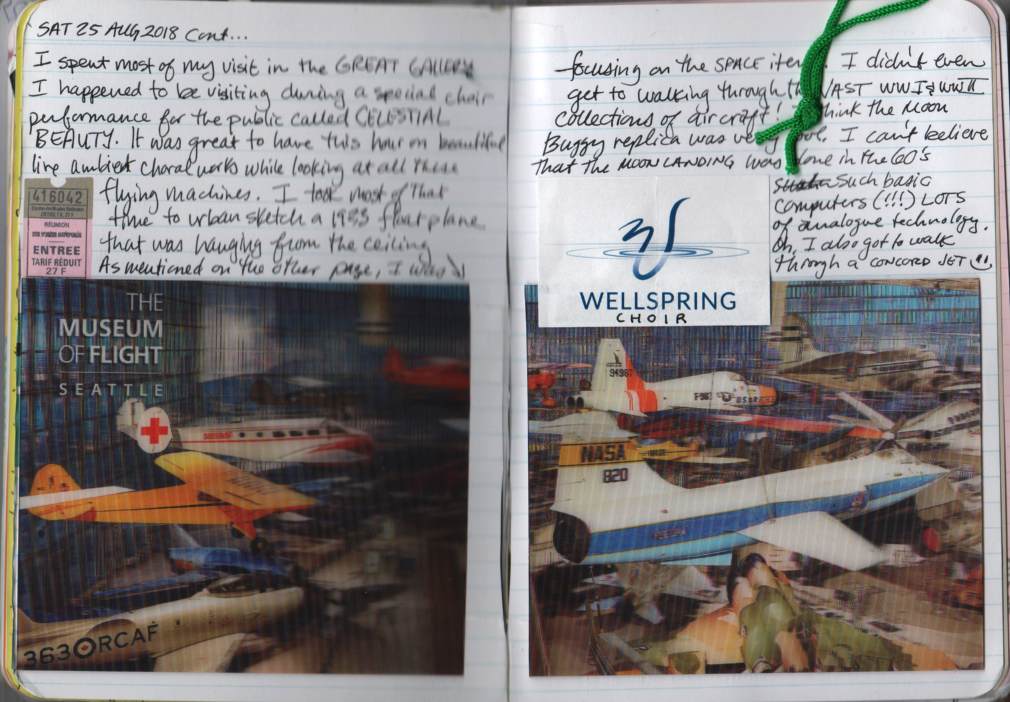 SAT 25 AUG 2018 Cont...
I spent most of my visit in the GREAT GALLERY
I happened to be visiting during a special choir
performance for the public called CELESTIAL
BEAUTY. It was great to have this hour on beautiful
live ambient choral works while looking at all these
flying machines. I took most of that
time to urban sketch a 1933 float plane
that was hanging from the ceiling
As mentioned on the other page, I was
416042
RÉUNION
ENTRÉE
TARIF RÉDUIT
27 F
THE
MUSEUM
OF FLIGHT
SEATTLE
363 RCAF
focusing on the SPACE item I didn't even
get to walking through the VAST WWI & WWII
collections of aircraft! think the Moon
Buggy replica was I can't believe
that the MOON LANDING was done in the 60's
Such basic
computers (!!!) LOTS
of analogue technology.
Oh, I also got to walk
through a CONCORD JET
WELLSPRING
CHOIR
94987
NASA
820